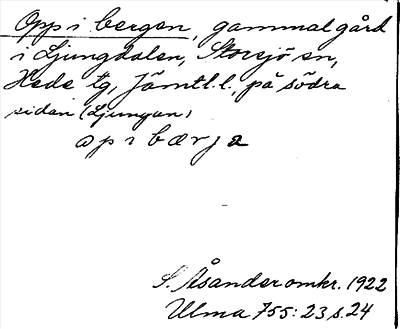 Opp i bergen, gammal gård
i Ljungdalen, Storsjö sn,
Hede tg, Jämtl. l., på södra
sidan (Ljungan)
op i bærja
S. Åsander omkr. 1922
Ulma 755: 23 s. 24